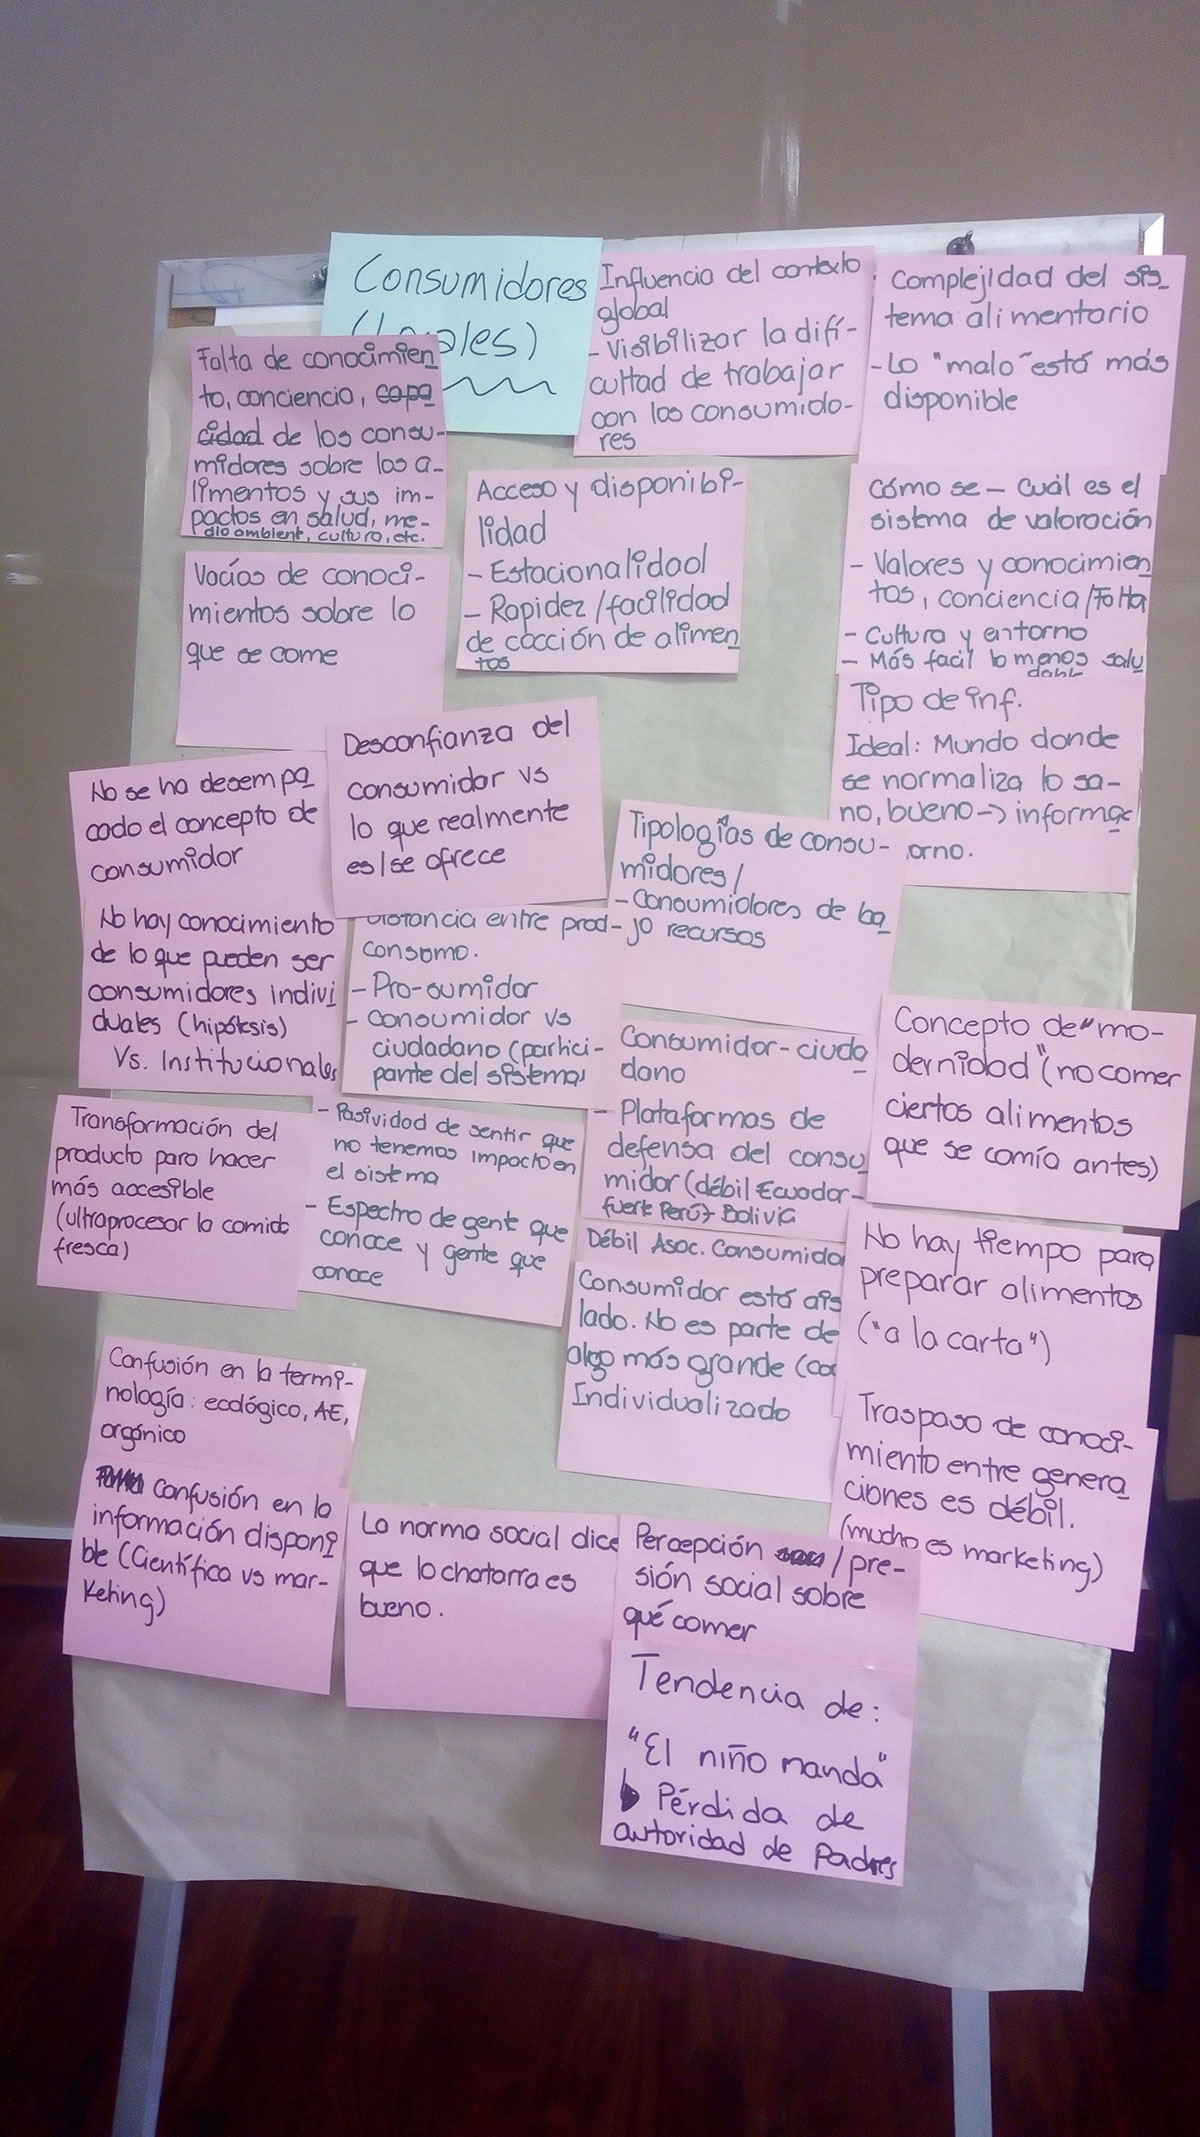 Consumidores
(Locales)
Influencia del contexto
global
- Visibilizar la difi-
cultad de trabajar
con los consumido-
res
Complejidad del sis_
tema alimentario
- Lo "malo" está más
disponible
Falta de conocimien
to, conciencia, capa
cidad de los consu-
midores sobre los a_
limentos y sus im-
pactos en salud, me-
dio ambient, cultura, etc.
Acceso y disponibi-
lidad
- Estacionalidad
- Rapidez/facilidad
de cocción de alimen
tos
Cómo se - Cuál es el
sistema de valoración
- Valores y conocimien
tos, conciencia/Falta
- Cultura y entorno
- Más facil lo menos salu
dable
Vacíos de conoci-
mientos sobre lo
que se come
Tipo de inf.
Ideal: Mundo donde
se normaliza lo sa-
no, bueno -> informac
orno.
No se ha desempa
cado el concepto de
consumidor
Desconfianza del
consumidor vs
lo que realmente
es/se ofrece
Tipologías de consu-
midores/
- Consumidores de ba
jo recursos
No hay conocimiento
de lo que pueden ser
consumidores indivi
duales (hipótesis)
Vs. Institucionales
Distancia entre prod-
consumo.
- Pro-sumidor
- Consumidor vs
ciudadano (partici-
pante del sistema)
Consumidor-ciuda
dano
- Plataformas de
defensa del consu
midor (débil Ecuador-
fuerte Perú y Bolivia
Concepto de "mo-
dernidad" (no comer
ciertos alimentos
que se comía antes)
Transformación del
producto para hacer
más accesible
(ultraprocesar la comida
fresca)
- Pasividad de sentir que
no tenemos impacto en
el sistema
- Espectro de gente que
conoce y gente que
conoce
Débil Asoc. Consumido
Consumidor está ais
lado. No es parte de
algo más grande
Individualizado
No hay tiempo para
preparar alimentos
("a la carta")
Confusión en la termi-
nología: ecológico, AE,
orgánico
Traspaso de conoci-
miento entre genera
ciones es débil.
(mucho es marketing)
Confusión en la
información disponi
ble (Científica vs mar-
keting)
La norma social dice
que lo chatarra es
bueno.
Percepción /pre-
sión social sobre
qué comer
Tendencia de:
"El niño manda"
↳ Pérdida de
autoridad de Padres